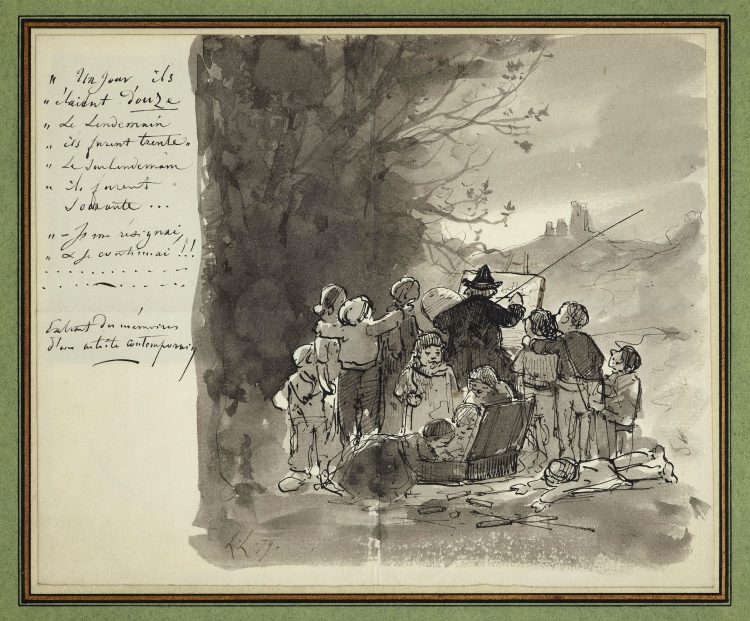 " Un jour ils
" étaient douze
" Le Lendemain
" ils furent trente "
" Le surlendemain
" ils furent
soixante ...
" - Je me résignai,
" & je continuai !!!
Extrait des mémoires
d'un artiste contemporain
L.L. 79.